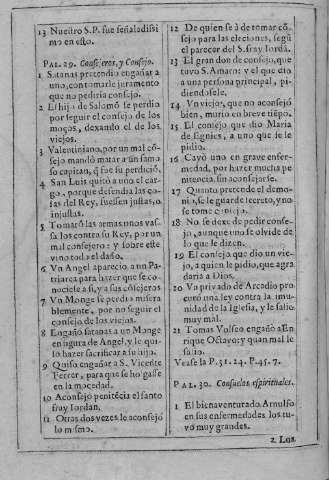 13 Nuestro S.P. fue señaladissi
mo en esto.
PAL. 29. Consejeros, y Consejo.
1 Satanas pretendio engañar a
uno, con tomarle juramento
que no pediria consejo.
2 El hijo de Salomõ se perdio
por seguir el consejo de los
moços, dexando el de los
viejos.
3 Valentiniano, por un mal cõ
sejo mandò matar a un famo
so capitan, q̃ fue su perdiciõ.
4 San Luis quitò a uno el car-
go, porque defendia las co-
sas del Rey, fuessen justas, o
injustas.
5 Tomarõ las armas unos vas-
sallos contra su Rey, por un
mal consejero: y sobre este
vino todo el daño.
6 Vn Angel apareciò a un Pa-
triarca para hazer que se co-
nociesse a si, y a sus cõsejeros
7 Vn Monge se perdio misera
blemente, por no seguir el
consejo de los viejos.
8 Engañò satanas a un Monge
en figura de Angel, y le qui-
so hazer sacrificar a su hijo.
9 Quiso engañar a S. Vicente
Ferrer, para que se holgasse
en la mocedad.
10 Aconsejò penitẽcia el santo
fray Iordan.
11 Otras dos vezes le aconsejò
lo mismo.
12 De quien se à de tomar cõ-
sejo para las electiones, segũ
el parecer del S. fray Iordã.
13 El gran don de consejo, que
tuvo S. Amaro: y el que dio
a una persona principal, pi-
diendosele.
14 Vn viejo, que no aconsejò
bien, murio en breve tiẽpo.
15 El consejo que dio Maria
de Signies, a uno que se le
pidio.
16 Cayò uno en grave enfer-
medad, por hazer mucha pe
nitencia, sin aconsejarse.
17 Quanto pretende el demo-
nio, se le guarde secreto, y no
se tome consejo.
18 No se dexe de pedir conse-
jo, aunque uno se olvide de
lo que le dizen.
19 El consejo que dio un vie-
jo, a quien le pidio, que agra
daria a Dios.
20 Vn privado de Arcadio pro
curò una ley contra la imu-
nidad de la Iglesia, y le salio
muy mal.
21 Tomas Volseo engañò a En
rique Octavo; y quan mal le
salio.
Vease la P. 31. 24. P. 45. 7.
PAL. 30. Consuelos espirituales.
1 El bienaventurado Arnulfo
en sus enfermedades los tu-
vo muy grandes.
2 Los